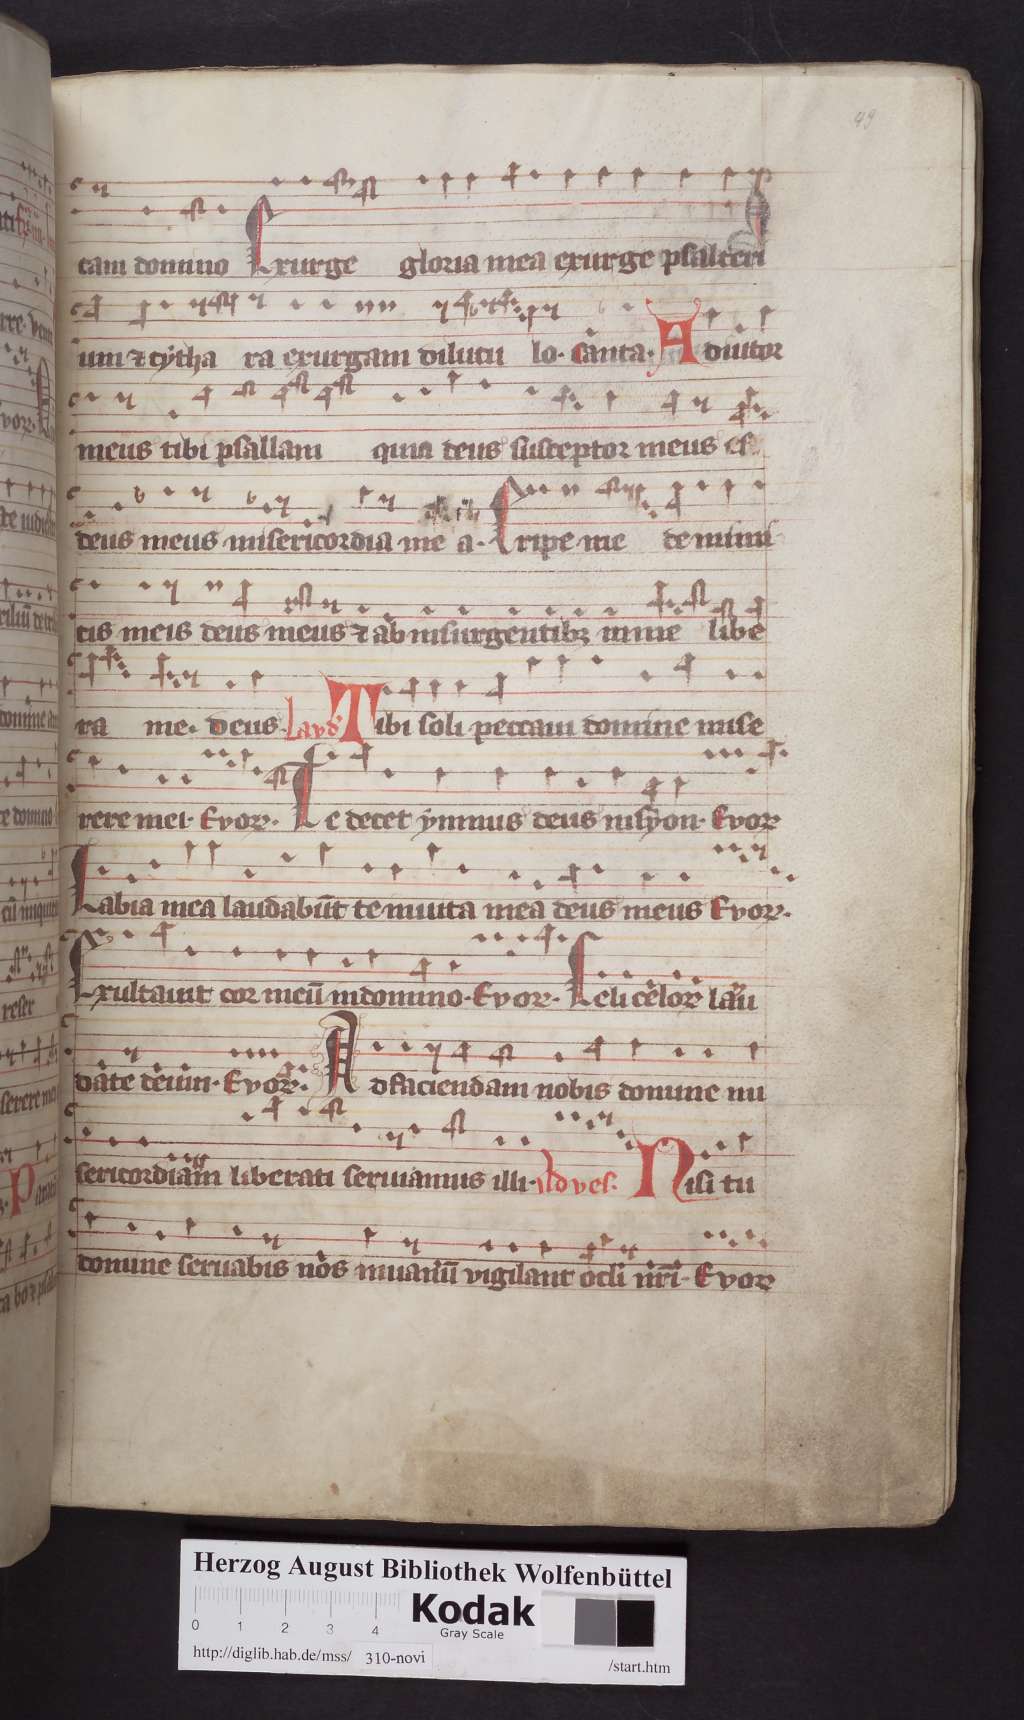 49
tam domino Exurge gloria mea exurge psalteri
um & cythara exurgam dilucu lo. Canta. Adiutor
meus tibi psallam quia deus susceptor meus es
deus meus misericordia me a. Eripe me de inimi
cis meis deus meus & ab insurgentibꝫ in me libe
ra me. Deus. Laud Tibi soli peccaui domine mise
rere mei. Evoꝝ. Te decet ymnus deus in syon. Evoꝝ
Labia mea laudabūt te in uita mea deus meus Evoꝝ.
Exultauit cor meū in domino. Evoꝝ. Celi celoꝝ lau
date deum. Evoꝝ. Ad faciendam nobis domine mi
sericordiam liberati seruiamus illi. Ad ves. Nisi tu
domine seruabis nos in uanū vigilant ocli nr̄i. Evoꝝ
Herzog August Bibliothek Wolfenbüttel
0 1 2 3 4
Kodak
Gray Scale
http://diglib.hab.de/mss/ 310-novi /start.htm